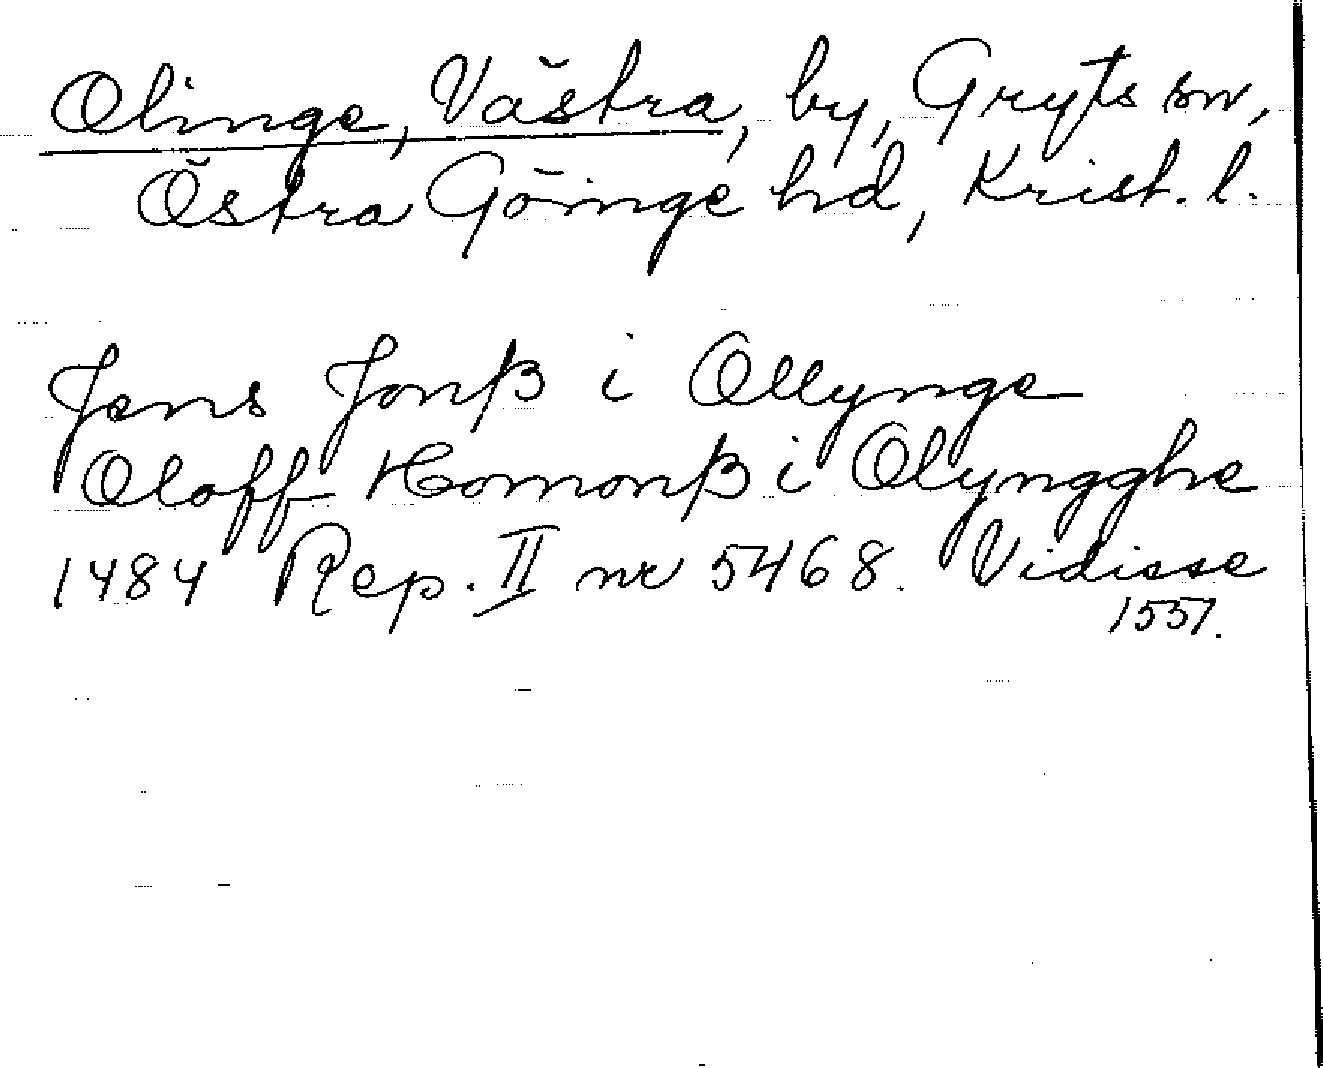 Olinge, Västra, by, Gryts sn,
Östra Göinge hd, Krist. l.
Jens Jonß i Ollynge
Oloff Homonß i Olyngghe
1484 Rep. II nr 5468. Vidisse
1557.